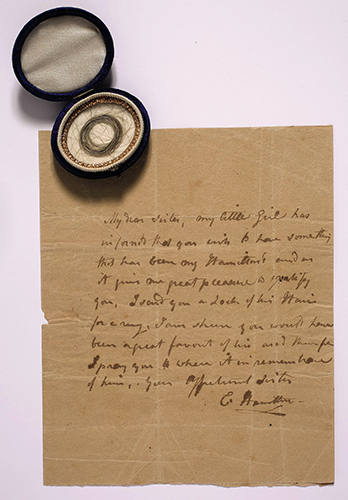 My dear Sister, my little Girl has
informd that you wish to have something
that has been my Hamiltons and as
it gives me great pleasure to gratify
you, I send you a Lock of his Hair
for a ring. I am shure you would have
been a great favort of his and therefor
I pray you to where it in remembrance
of him,. Your Affectunat Sister
E Hamilton